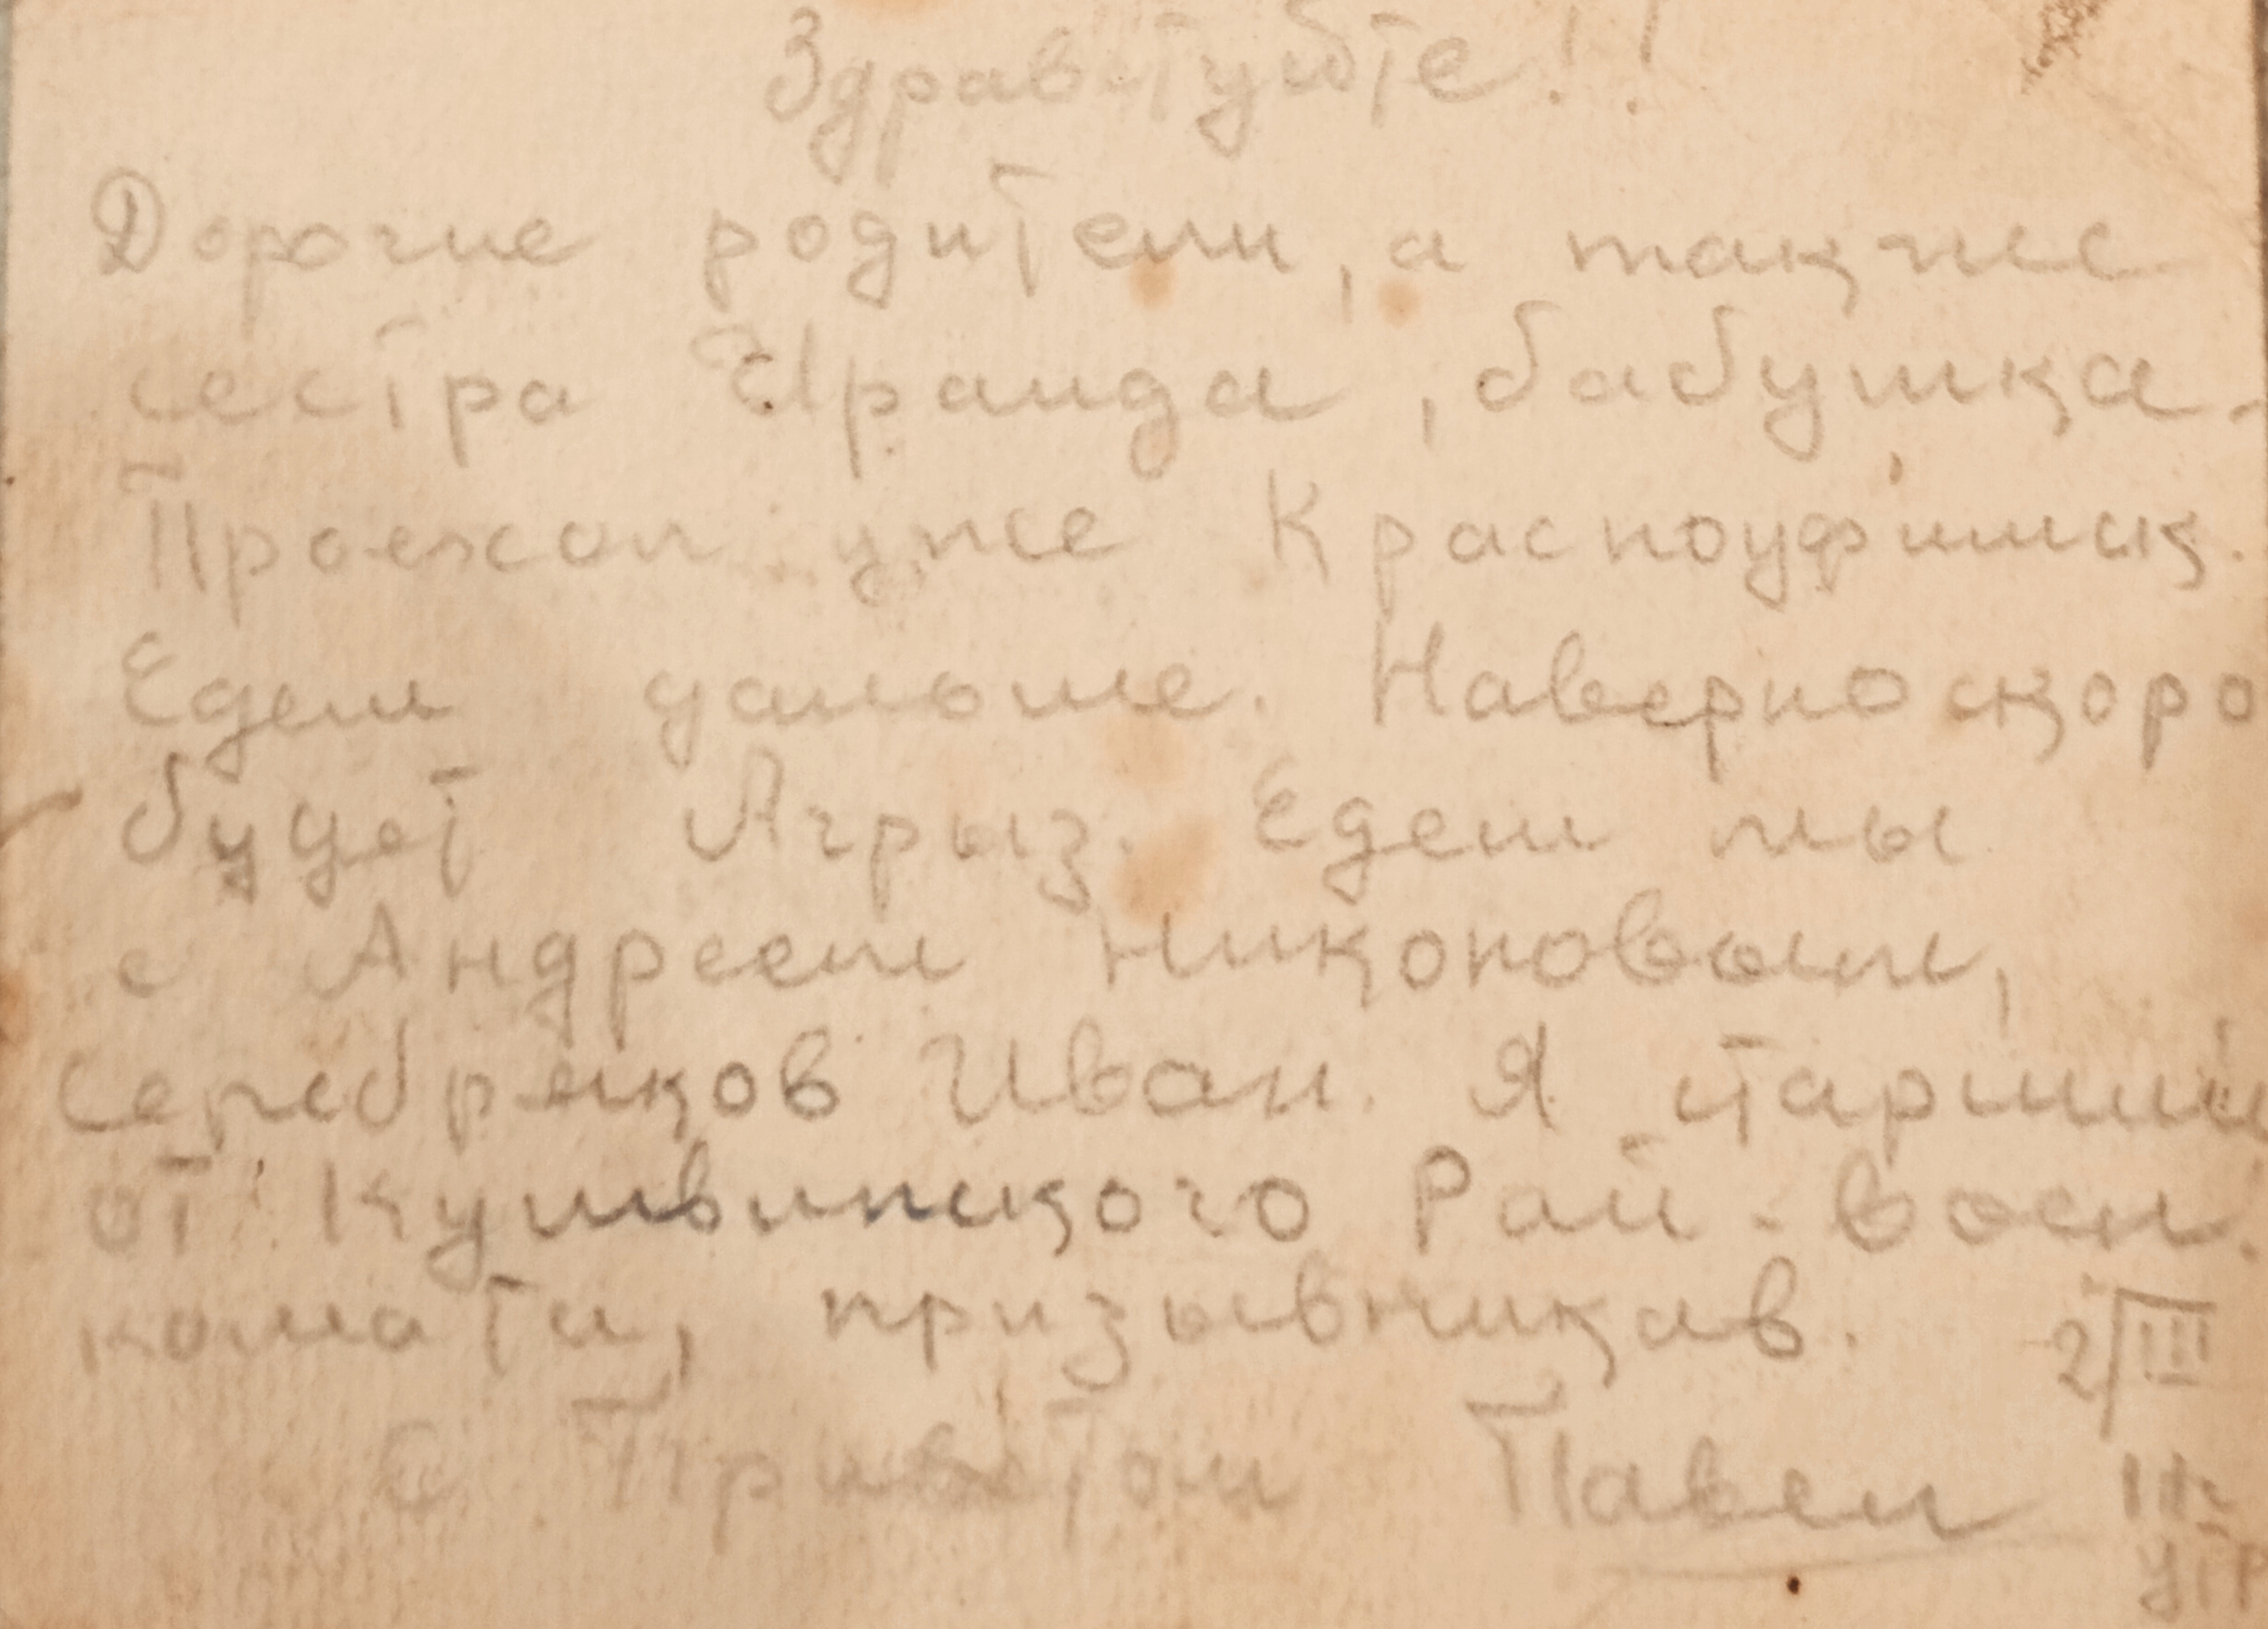 Здравстуйте!!
Дорогие родители, а также
сестра Ираида, бабушка.
Проехал уже Красноуфимск.
Едем дальше. Наверно скоро
будет Агрыз. Едем мы
с Андреем Никоновым,
Серебряков Иван. Я старший
от Кушвинского Рай-воен.
комата, призывников. 2/III
С Приветом Павел